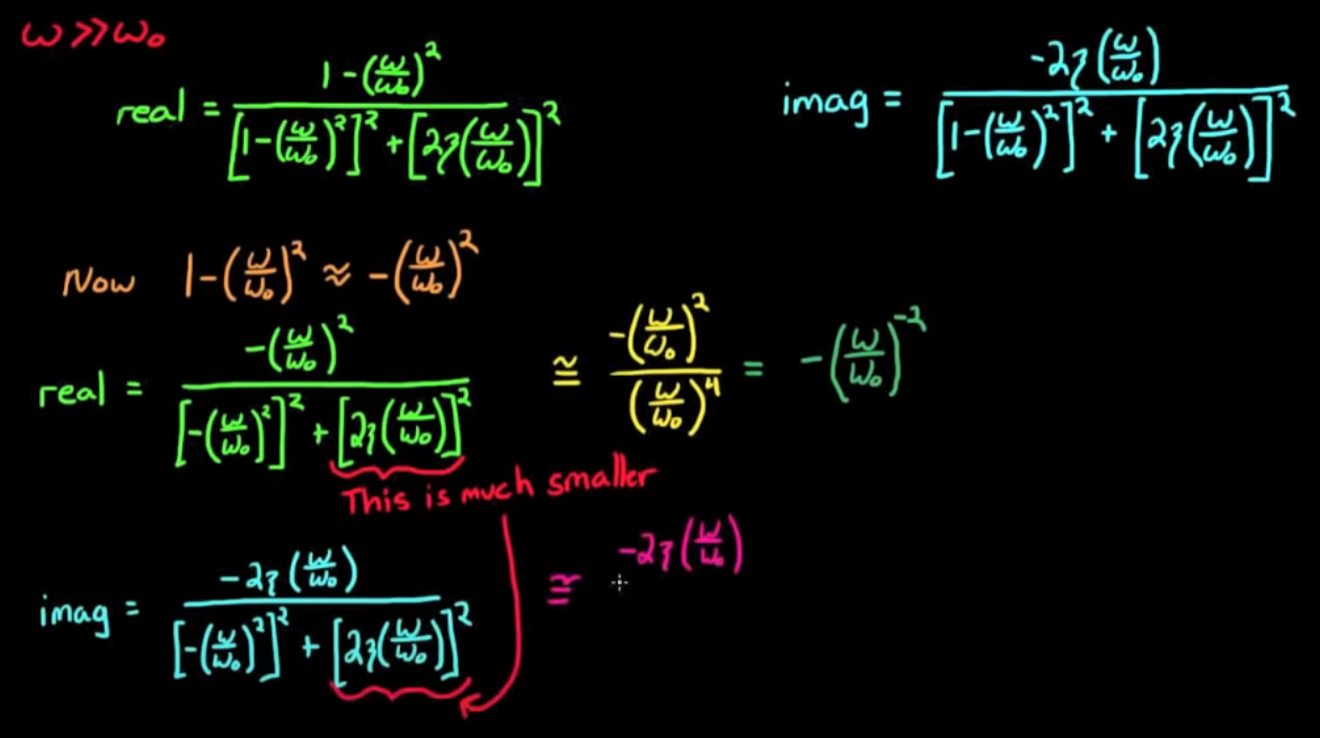 ω >> ω₀
real = (1 - (ω/ω₀)²) / ([1 - (ω/ω₀)²]² + [2ζ(ω/ω₀)]²)
imag = (-2ζ(ω/ω₀)) / ([1 - (ω/ω₀)²]² + [2ζ(ω/ω₀)]²)
Now 1 - (ω/ω₀)² ≈ -(ω/ω₀)²
real = (-(ω/ω₀)²) / ([-(ω/ω₀)²]² + [2ζ(ω/ω₀)]²) ≅ (-(ω/ω₀)²) / ((ω/ω₀)⁴) = -(ω/ω₀)⁻²
This is much smaller
imag = (-2ζ(ω/ω₀)) / ([-(ω/ω₀)²]² + [2ζ(ω/ω₀)]²) ≅ -2ζ(ω/ω₀)